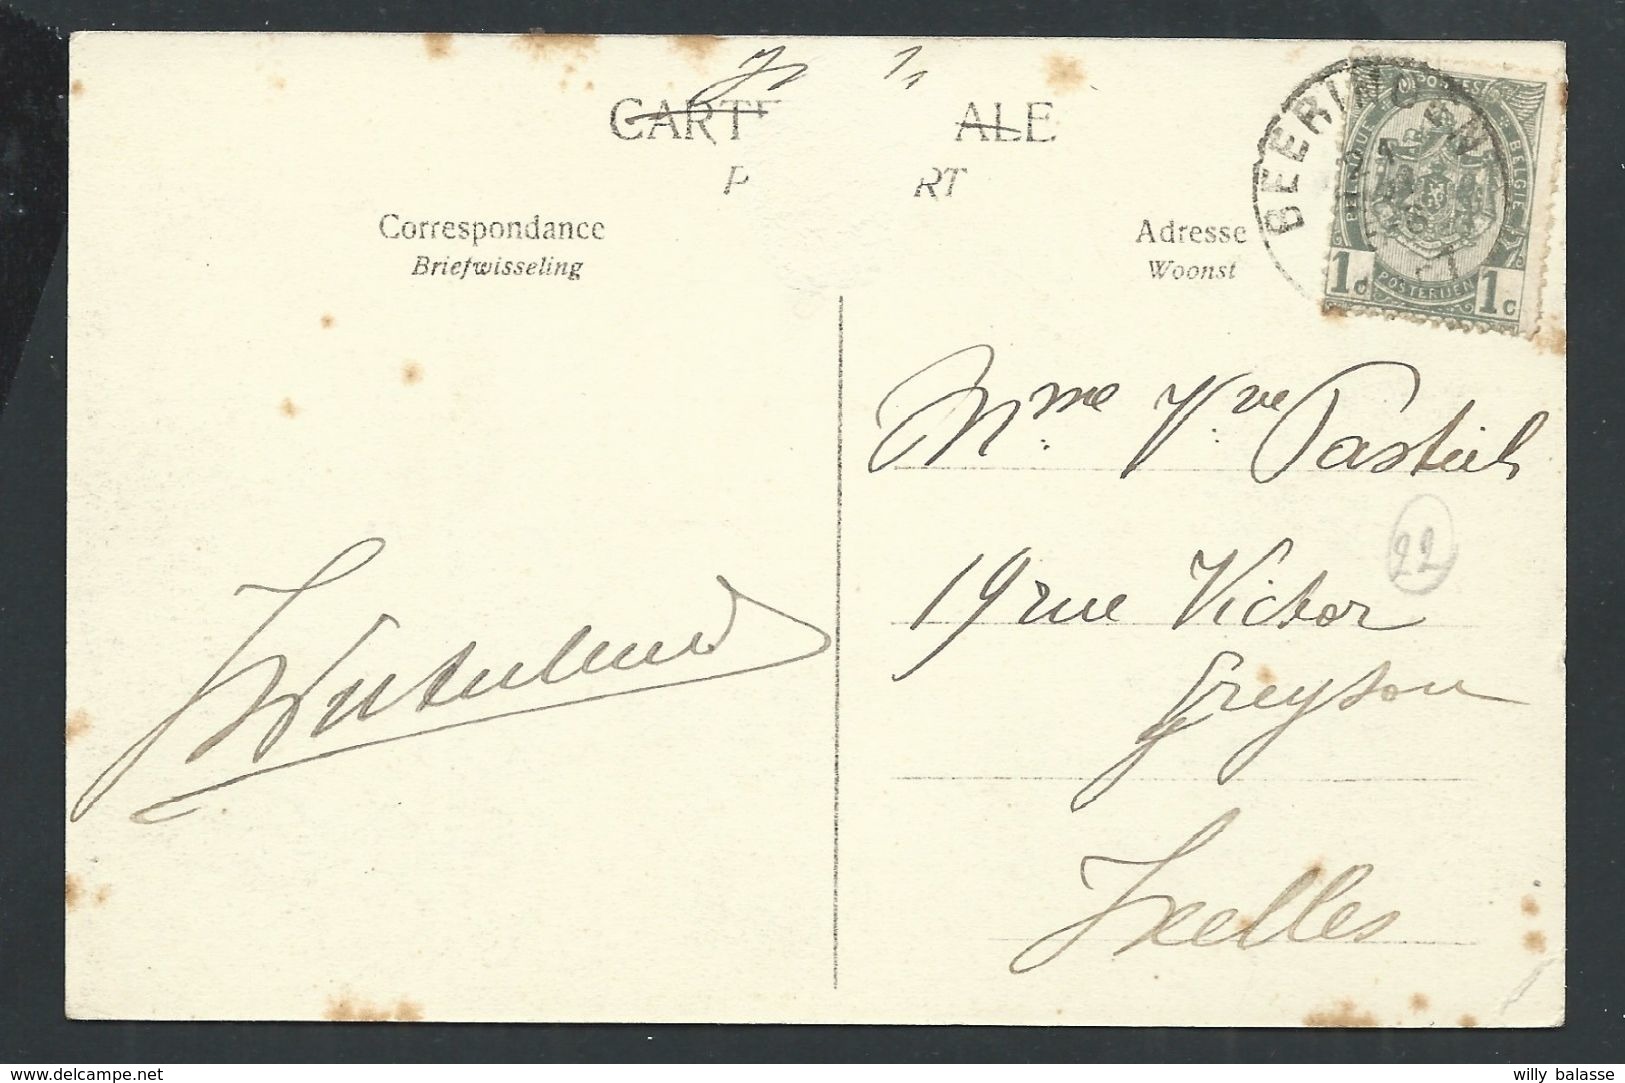 CARTE ALE
P RT
Correspondance
Briefwisseling
Adresse
Woonst
BEERINGEN
BELGIQUE POSTES BELGIË
POSTERIJEN
1c 1c
Mme Vve Pastiels
22
19 rue Victor
Greyson
Ixelles
www.delcampe.net
willy balasse